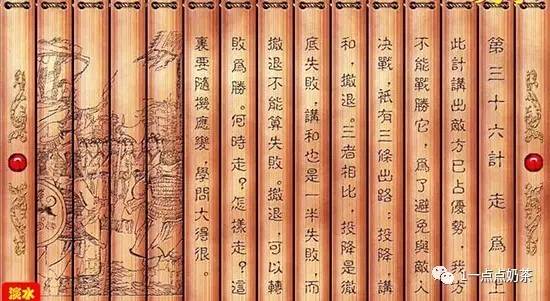 第三十六計 走爲上
此計講出敵方已占優勢，我方
不能戰勝它，爲了避免與敵人
决戰，衹有三條出路：投降，講
和，撤退。三者相比，投降是徹
底失敗，講和也是一半失敗，而
撤退不能算失敗。撤退，可以轉
敗爲勝。何時走？怎樣走？這
裏要隨機應變，學問大得很。
淡水
1一点点奶茶